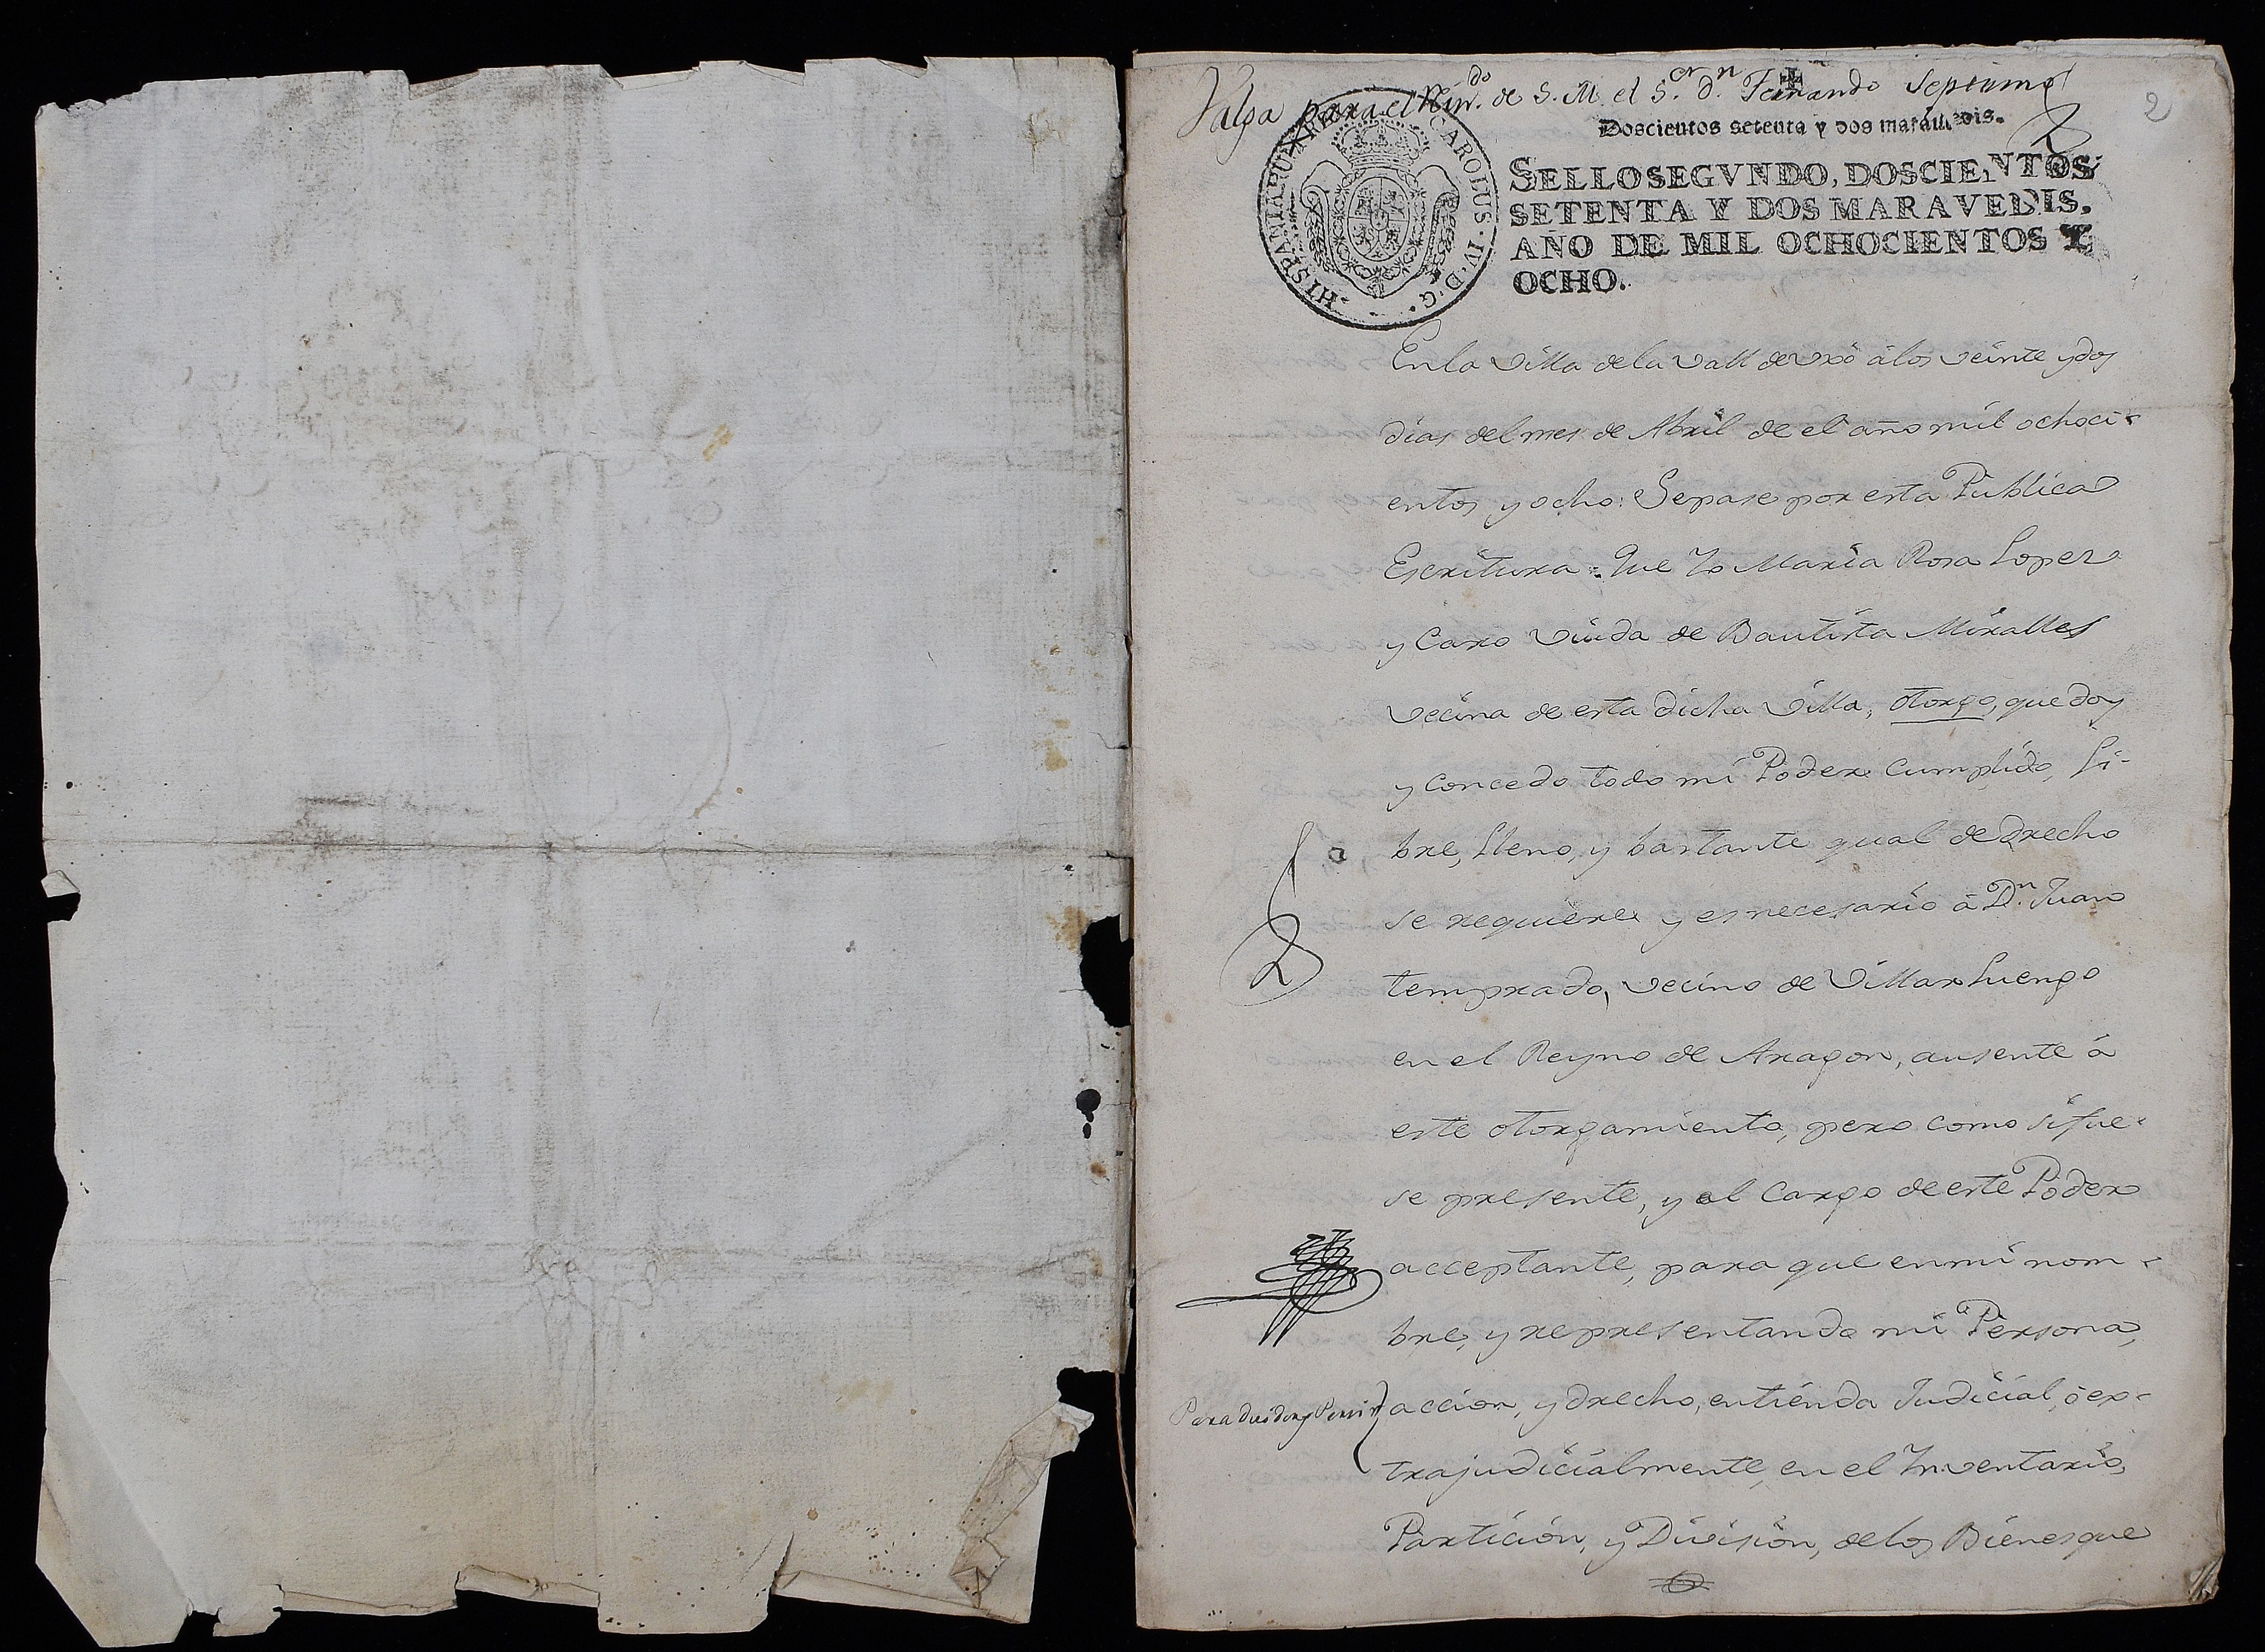 Valga para el Rein.do de S. M. el S.or d.n Fernando Septimo
2
Doscientos setenta y dos maravedis.
HISPANIAR
CAROLUS · IV · D · G ·
SELLO SEGVNDO, DOSCIENTOS
SETENTA Y DOS MARAVEDIS,
AÑO DE MIL OCHOCIENTOS Y
OCHO.
En la Villa de la Vall de Uxó á los veinte y dos
dias del mes de Abril de el año mil ochoci-
entos y ocho: Sepase por esta Publica
Escritura: Que Yo Maria Rosa Lopez
y Caro Viuda de Bautista Miralles
vecina de esta dicha Villa, otorgo, que doy
y concedo todo mi Poder cumplido, Li-
bre, lleno, y bastante qual de drecho
se requiere y es necesario á D.n Juan
temprado, vecino de Villarluengo
en el Reyno de Aragon, ausente á
este otorgamiento, pero como si fue-
se presente, y el Cargo de este Poder
acceptante, para que en mi nom-
bre, y representando mi Persona,
Para
accion, y drecho, entienda Judicial, ó ex-
trajudicialmente, en el Inventario,
Particion, y Division, de los Bienes que